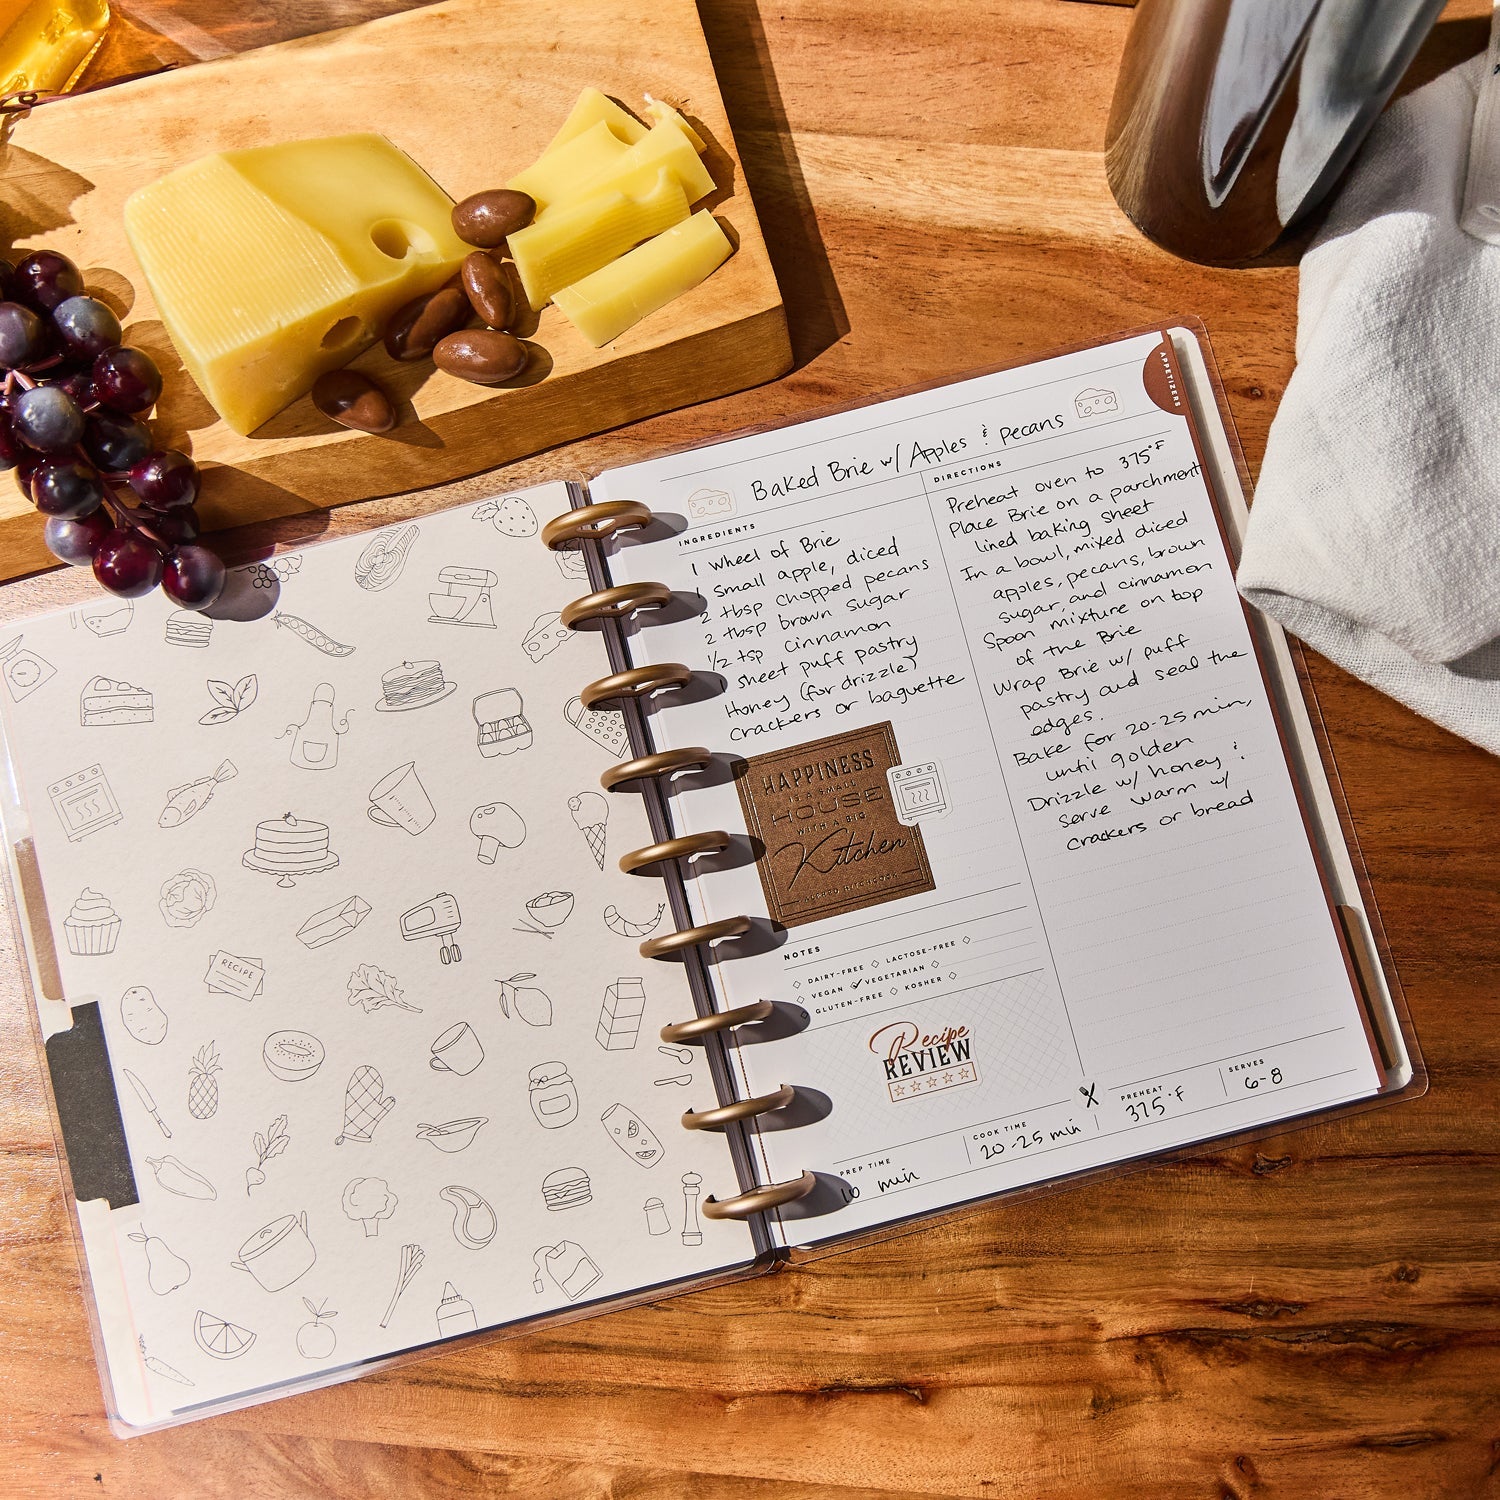 RECIPE
APPETIZERS
Baked Brie w/ Apples & Pecans
INGREDIENTS
1 wheel of Brie
1 small apple, diced
2 tbsp chopped pecans
2 tbsp brown sugar
1/2 tsp cinnamon
1 sheet puff pastry
Honey (for drizzle)
Crackers or baguette
HAPPINESS
IS A SMALL
HOUSE
WITH A BIG
Kitchen
DIRECTIONS
Preheat oven to 375°F
Place Brie on a parchment
lined baking sheet
In a bowl, mixed diced
apples, pecans, brown
sugar, and cinnamon
Spoon mixture on top
of the Brie
Wrap Brie w/ puff
pastry and seal the
edges.
Bake for 20-25 min,
until golden
Drizzle w/ honey &
serve warm w/
crackers or bread
NOTES
DAIRY-FREE LACTOSE-FREE
VEGAN VEGETARIAN
GLUTEN-FREE KOSHER
Recipe
REVIEW
PREP TIME
10 min
COOK TIME
20-25 min
PREHEAT
375°F
SERVES
6-8